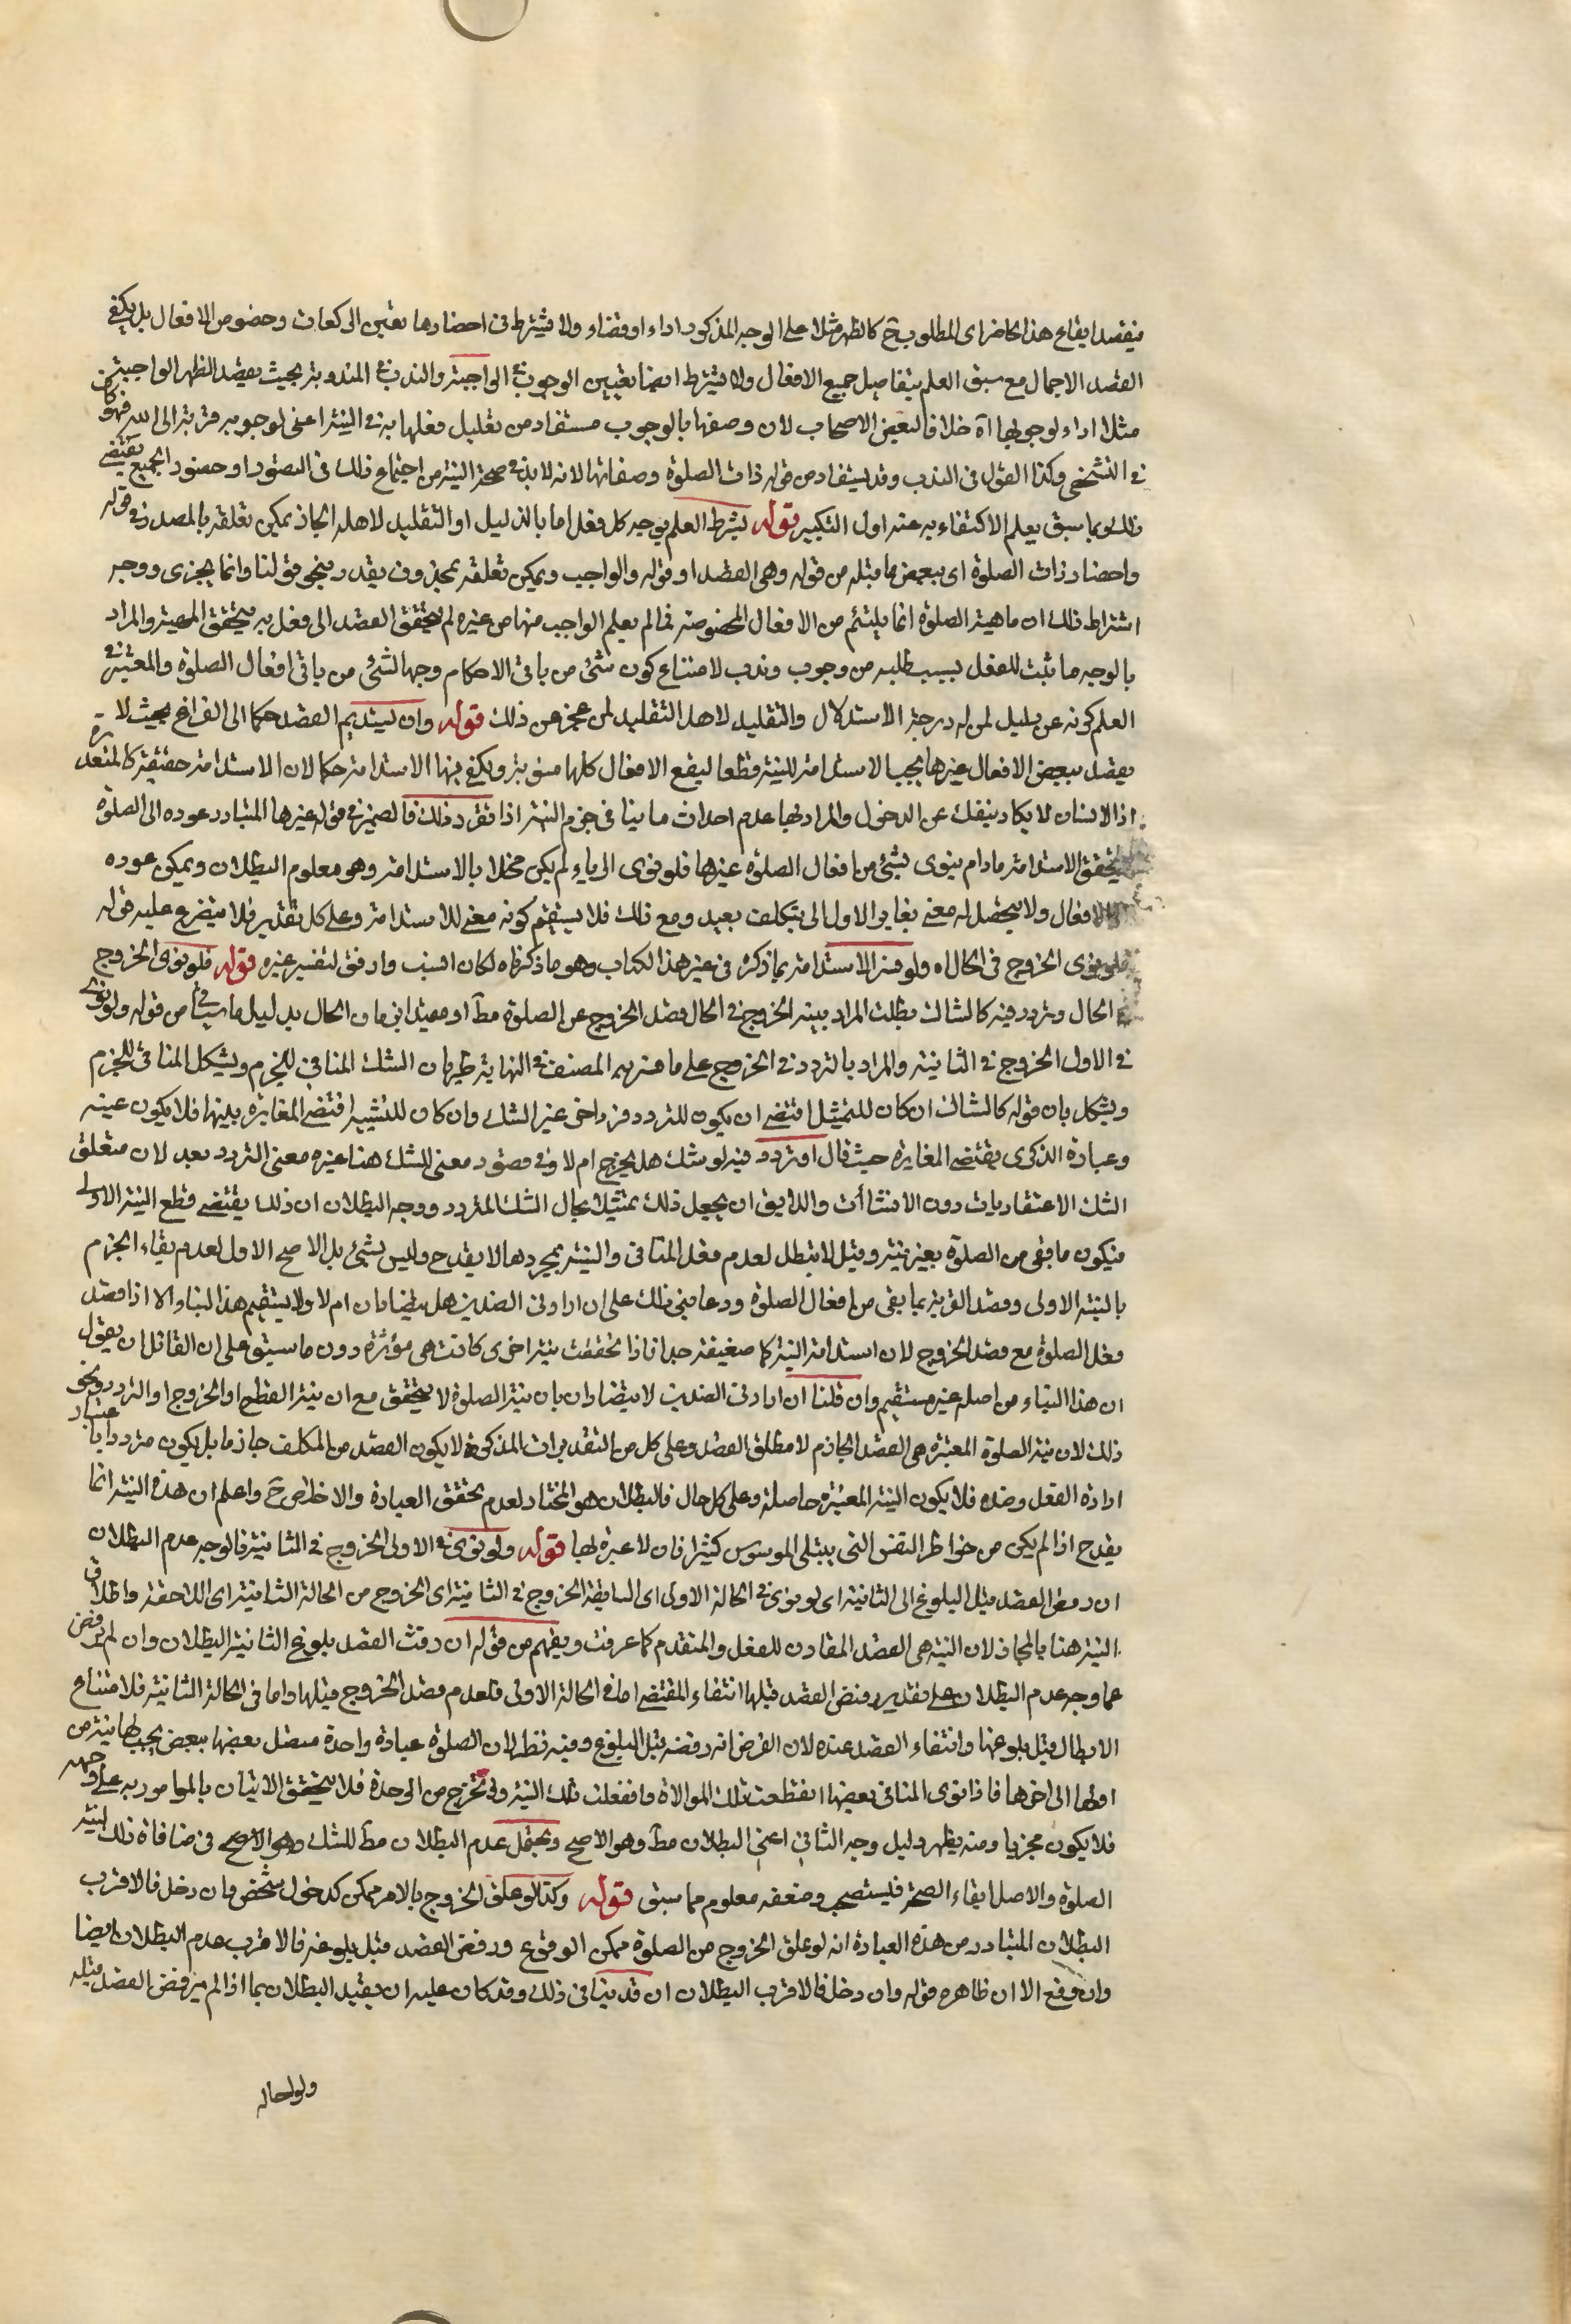 فيقصد ايقاع هذا الحاضر اى المطلوب ح كالظهر مثلا على الوجه المذكور اداء او قضاء ولا يشترط فى احضارها تعيين الركعات وخصوص الافعال بل يكفى
القصد الاجمالى مع سبق العلم بتفاصيل جميع الافعال ولا يشترط ايضا تعيين الوجوب فى الواجبة والندب فى المندوبة بحيث يقصد الظهر الواجبة
مثلا اداء لوجوبها اه خلافا لبعض الاصحاب لان وصفها بالوجوب مستفاد من تعليل فعلها به فى النية اعنى لوجوبه قربة الى الله فهو كان
فى التشخص وكذا القول فى الندب وقد يستفاد من قوله ذات الصلوة وصفاتها لانه لا بد فى صحة النية من اجتماع ذلك فى التصور او حضور الجميع يقتضى
ذلك وبما سبق يعلم الاكتفاء به عند اول التكبير قوله بشرط العلم بوجه كل فعل اما بالدليل او التقليد لاهله الجار يمكن تعلقه بالمصدر فى قوله
واحضار ذات الصلوة اى ببعض ما قبله من قوله وهى القصد او قوله والواجب ويمكن تعلقه بمحذوف يقدر بنحو قولنا وانما يجزى ووجه
اشتراط ذلك ان ماهية الصلوة انما يلتئم من الافعال المخصوصة فما لم يعلم الواجب منها من غيره لم يتحقق القصد الى فعل به يتحقق المهية والمراد
بالوجه ما ثبت للفعل بسبب طلبه من وجوب وندب لامتناع كون شئ من باقى الاحكام وجها لشئ من باقى افعال الصلوة والمعتبر فى
العلم كونه عن دليل لمن له درجة الاستدلال والتقليد لاهل التقليد لمن عجز عن ذلك قوله وان يستديم القصد حكما الى الفراغ بحيث لا
يقصد ببعض الافعال غيرها يجب الاستدامة للنية قطعا ليقع الافعال كلها منوية ويكفى فيها الاستدامة حكما لان الاستدامة حقيقة كالمتعذرة
اذ الانسان لا يكاد ينفك عن الدخول والمراد بها عدم احداث ما ينافى جزم النية اذا تقرر ذلك فالضمير فى قوله غيرها المتبادر عوده الى الصلوة
يتحقق الاستدامة مادام ينوى بشئ من افعال الصلوة غيرها فلو نوى الرياء لم يكن مخلا بالاستدامة وهو معلوم البطلان ويمكن عوده
الافعال ولا يتحصل له معنى يغاير الاول الا بتكلف بعيد ومع ذلك فلا يستقيم كونه معنى للاستدامة وعلى كل تقدير فلا يتفرع عليه قوله
فلو نوى الخروج فى الحال اه ولو فسر الاستدامة بما ذكره فى غير هذا الكتاب وهو ما ذكرناه لكان انسب واوفق لتفسير غيره قوله فلو نوى الخروج
فى الحال وتردد فيه كالشاك بطلت المراد بنية الخروج فى الحال قصد الخروج عن الصلوة مطا او مقيدا بزمان الحال بدليل ما سيأتى من قوله ولو نوى
فى الاول الخروج فى الثانية والمراد بالتردد فى الخروج على ما فسر به المصنف فى النهاية طريان الشك المنافى للجزم ويشكل المنافى للجزم
ويشكل بان قوله كالشاك ان كان للتمثيل اقتضى ان يكون للتردد فرد اخر غير الشك وان كان للتشبيه اقتضى المغايرة بينها فلا يكون عينه
وعبارة الذكرى يقتضى المغايرة حيث قال او تردد فيه او شك هل يخرج ام لا وفى تصور معنى للشك هنا غيره معنى التردد بعد لان متعلق
الشك الاعتقاديات دون الانشاأت واللايق ان يجعل ذلك تمثيلا بحال الشك المتردد ووجه البطلان ان ذلك يقتضى قطع النية الاولى
فيكون ما بقى من الصلوة بغير نية وقيل لا تبطل لعدم فعل المنافى والنية بمجردها لا يقدح وليس بشئ بل الاصح الاول لعدم بقاء الجزم
بالنية الاولى وقصد القربة بما بقى من افعال الصلوة وربما بنى ذلك على ان ارادتى الضدين هل يتضادان ام لا ولا يستقيم هذا البناء الا اذا قصد
فعل الصلوة مع قصد الخروج لان استدامة النية كما ضعيفة جدا فاذا تحققت نية اخرى كانت هى مؤثرة دون ما سبق على ان القائل ان يقول
ان هذا البناء من اصله غير مستقيم وان قلنا ان ارادتى الضدين لا يتضادان بان نية الصلوة لا يتحقق مع ان نية القطع او الخروج او التردد ونحو
ذلك لان نية الصلوة المعتبرة هى القصد الجازم لا مطلق القصد وعلى كل من التقديرات المذكورة لا يكون القصد من المكلف جازما بل يكون مترددا باعتبار
ارادة الفعل وضده فلا يكون النية المعتبرة حاصلة وعلى كل حال فالبطلان هو المختار لعدم تحقق العبادة والاخلاص ح واعلم ان هذه النية انما
يقدح اذا لم يكن من خواطر النفس التى يبتلى الموسوس كثيرا فان لا عبرة بها قوله ولو نوى فى الاولى الخروج فى الثانية فالوجه عدم البطلان
ان رفض القصد قبل البلوغ الى الثانية اى لو نوى فى الحالة الاولى اى السابقة الخروج فى الثانية اى الخروج من الحالة الثانية اى اللاحقة واطلاق
النية هنا بالمجاز لان النية هى القصد المقارن للفعل والمتقدم كما عرفت ويفهم من قوله ان رفض القصد بلوغ الثانية البطلان وان لم يرفض
عما وجه عدم البطلان على تقدير رفض القصد قبلها انتفاء المقتضى اما فى الحالة الاولى فلعدم قصد الخروج قبلها واما فى الحالة الثانية فلامتناع
الابطال قبل بلوغها وانتفاء القصد عنده لان الفرض انه رفضه قبل البلوغ وفيه نظر لان الصلوة عبادة واحدة متصل بعضها ببعض يجب لها نية من
اولها الى اخرها فاذا نوى المنافى بعضها انقطعت تلك الموالاة وانفصلت تلك النية ولم تخرج من الوحدة فلا يتحقق الاتيان بالمامور به على وجهه
فلا يكون مجزيا ومنه يظهر دليل وجه الثانى اعنى البطلان مط وهو الاصح ويحتمل عدم البطلان مط للشك وهو الاصح فى منافاة ذلك لنية
الصلوة والاصل ابقاء الصحة فليستصحب وضعفه معلوم مما سبق قوله وكذا لو علق الخروج بالامر ممكن كدخول شخص فان دخل فالاقرب
البطلان المتبادر من هذه العبارة انه لو علق الخروج من الصلوة ممكن الوقوع ورفض القصد قبل بلوغه فالاقرب عدم البطلان ايضا
وان وقع الا ان ظاهره قوله وان دخل فالاقرب البطلان ان قد ينافى ذلك وقد كان عليه ان يقيد البطلان بما اذا لم يرفض القصد قبله